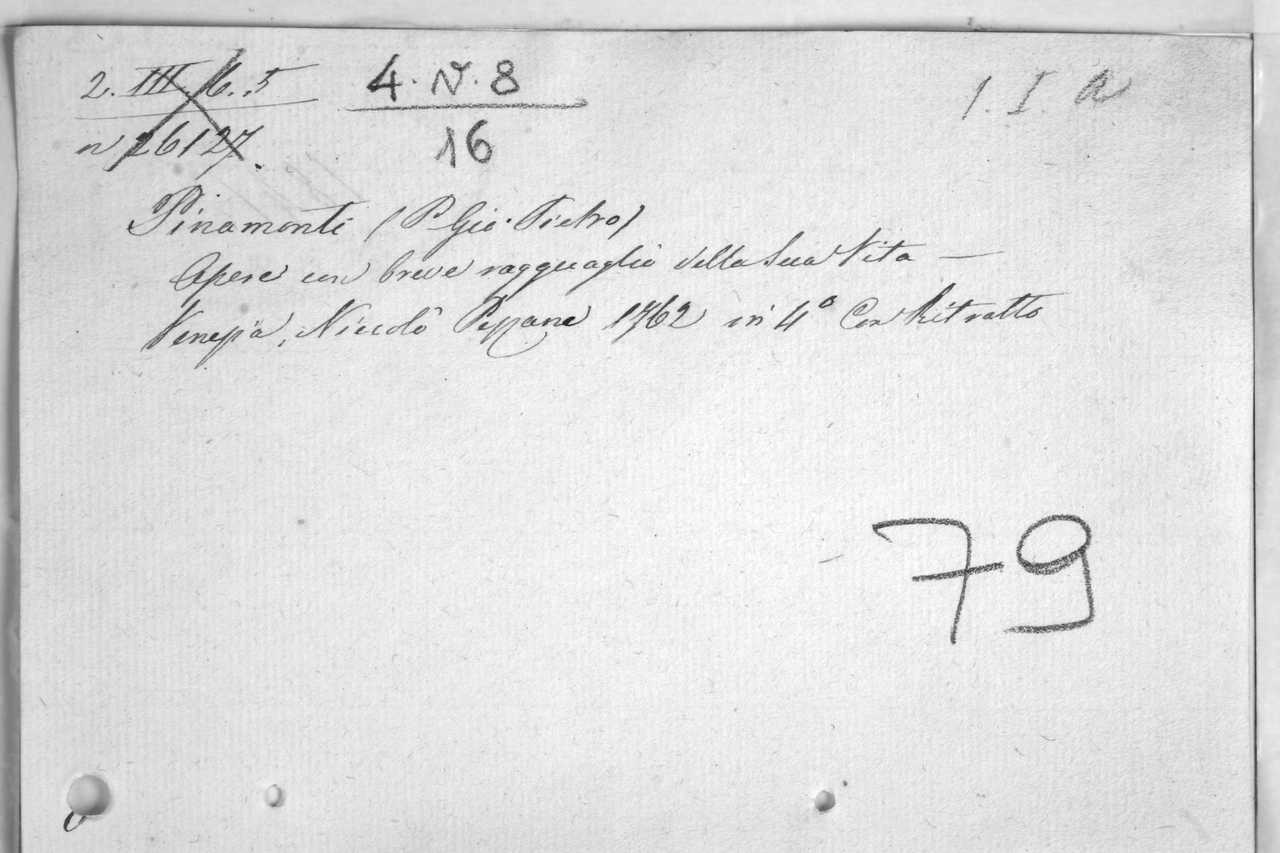 2. III. 16. 5
n 26127.
4. N. 8
16
1. I. a
Pinamonti (P. Gio. Pietro)
Opere con breve ragguaglio della Sua Vita —
Venezia, Niccolò Pezzana 1762 in 4° Con Ritratto
79